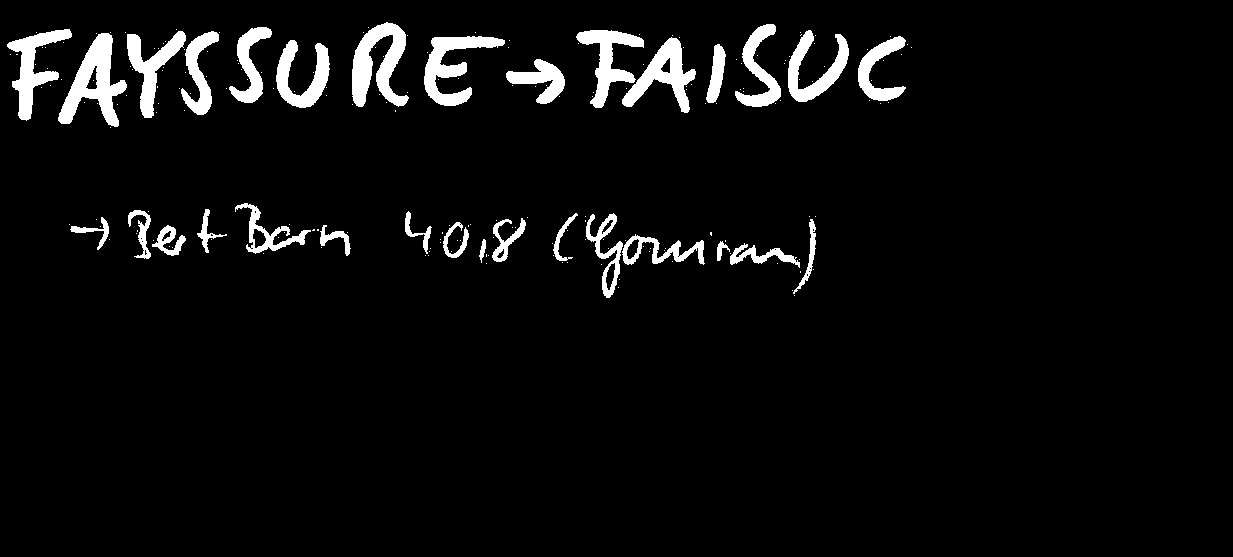 FAYSSURE → FAISUC
→ Bert Born 40,8 (Gouiran)